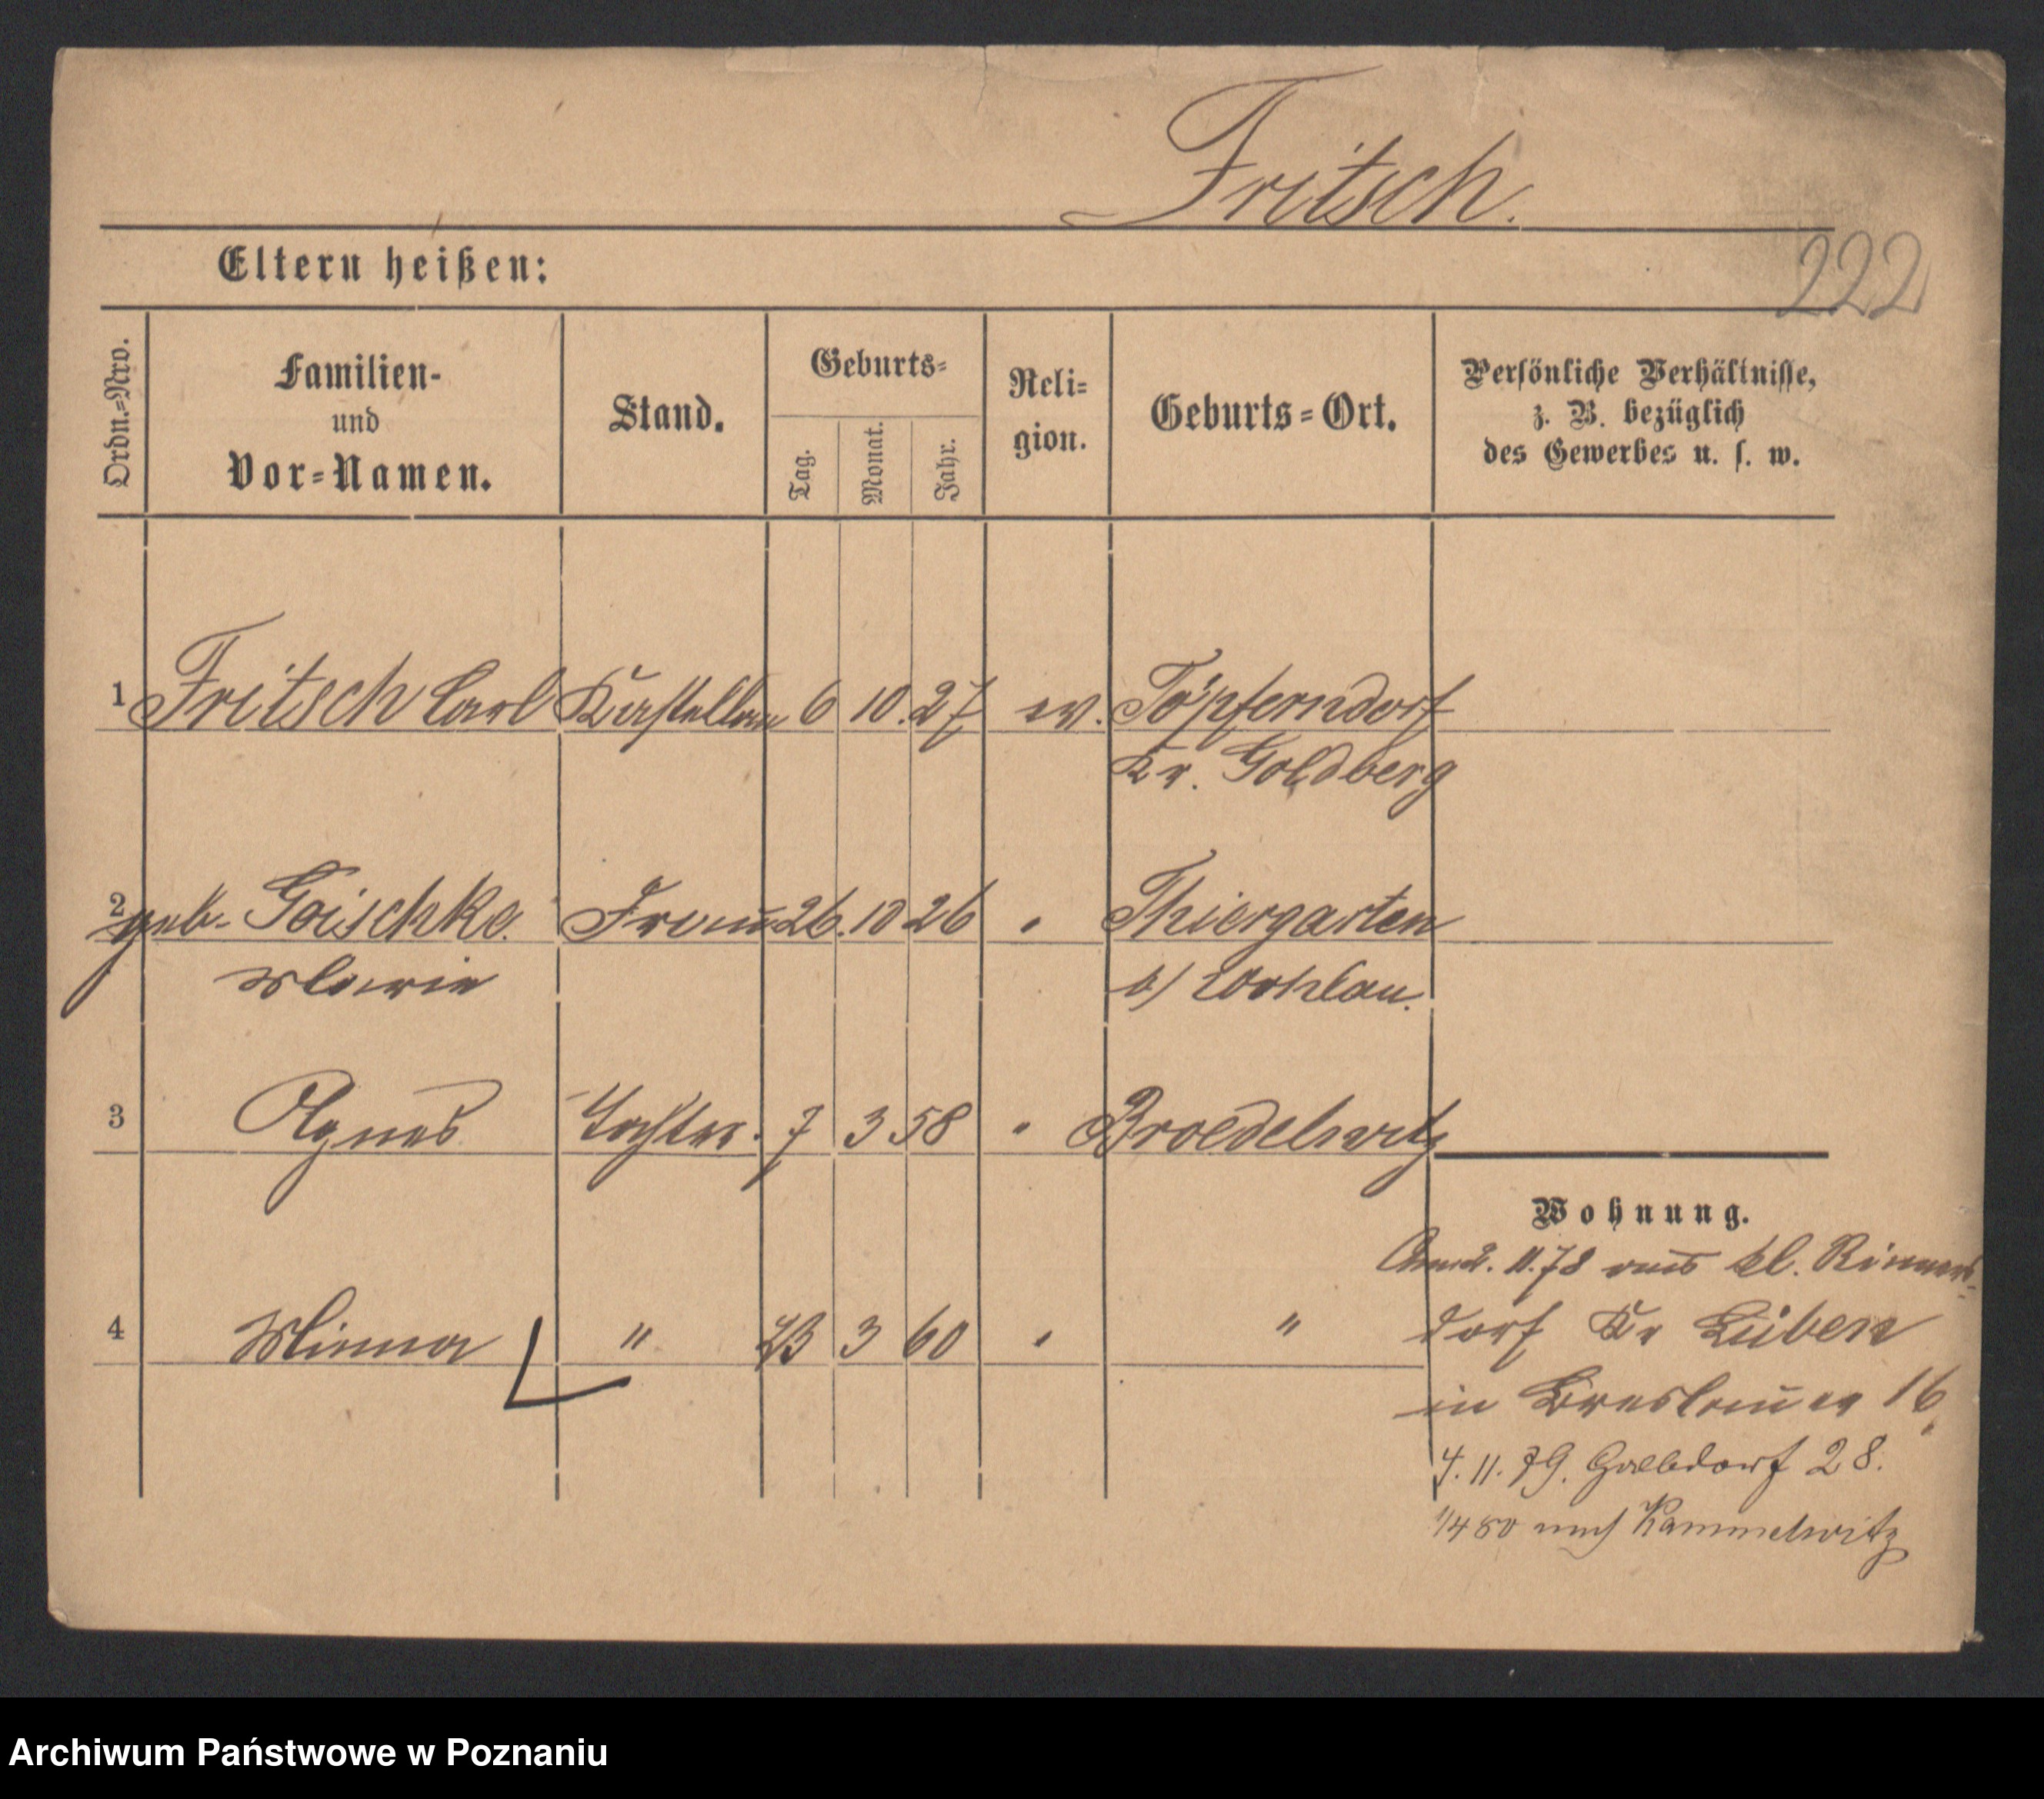 Fritsch.
222
Eltern heißen:
Ordn.=Nro.
Familien-
und
Vor=Namen.
Stand.
Geburts=
Tag.
Monat.
Jahr.
Reli=
gion.
Geburts=Ort.
Persönliche Verhältnisse,
z. B. bezüglich
des Gewerbes u. s. w.
1 Fritsch Carl Kastellan 6 10. 27 ev. Töpferndorf
Kr. Goldberg
2 geb. Goischke. Frau 26. 10 26 " Thiergarten
Marie b/ Wohlau.
3 Agnes Tochter. 7 3 58 " Broedelwitz
Wohnung.
2. 11. 78 aus kl. Rinners-
4 Minna " 23 3 60 " "
dorf Kr Lüben
in Breslauer 16
4. 11. 79. 28.
1/4 80 nach Kammelwitz
Archiwum Państwowe w Poznaniu